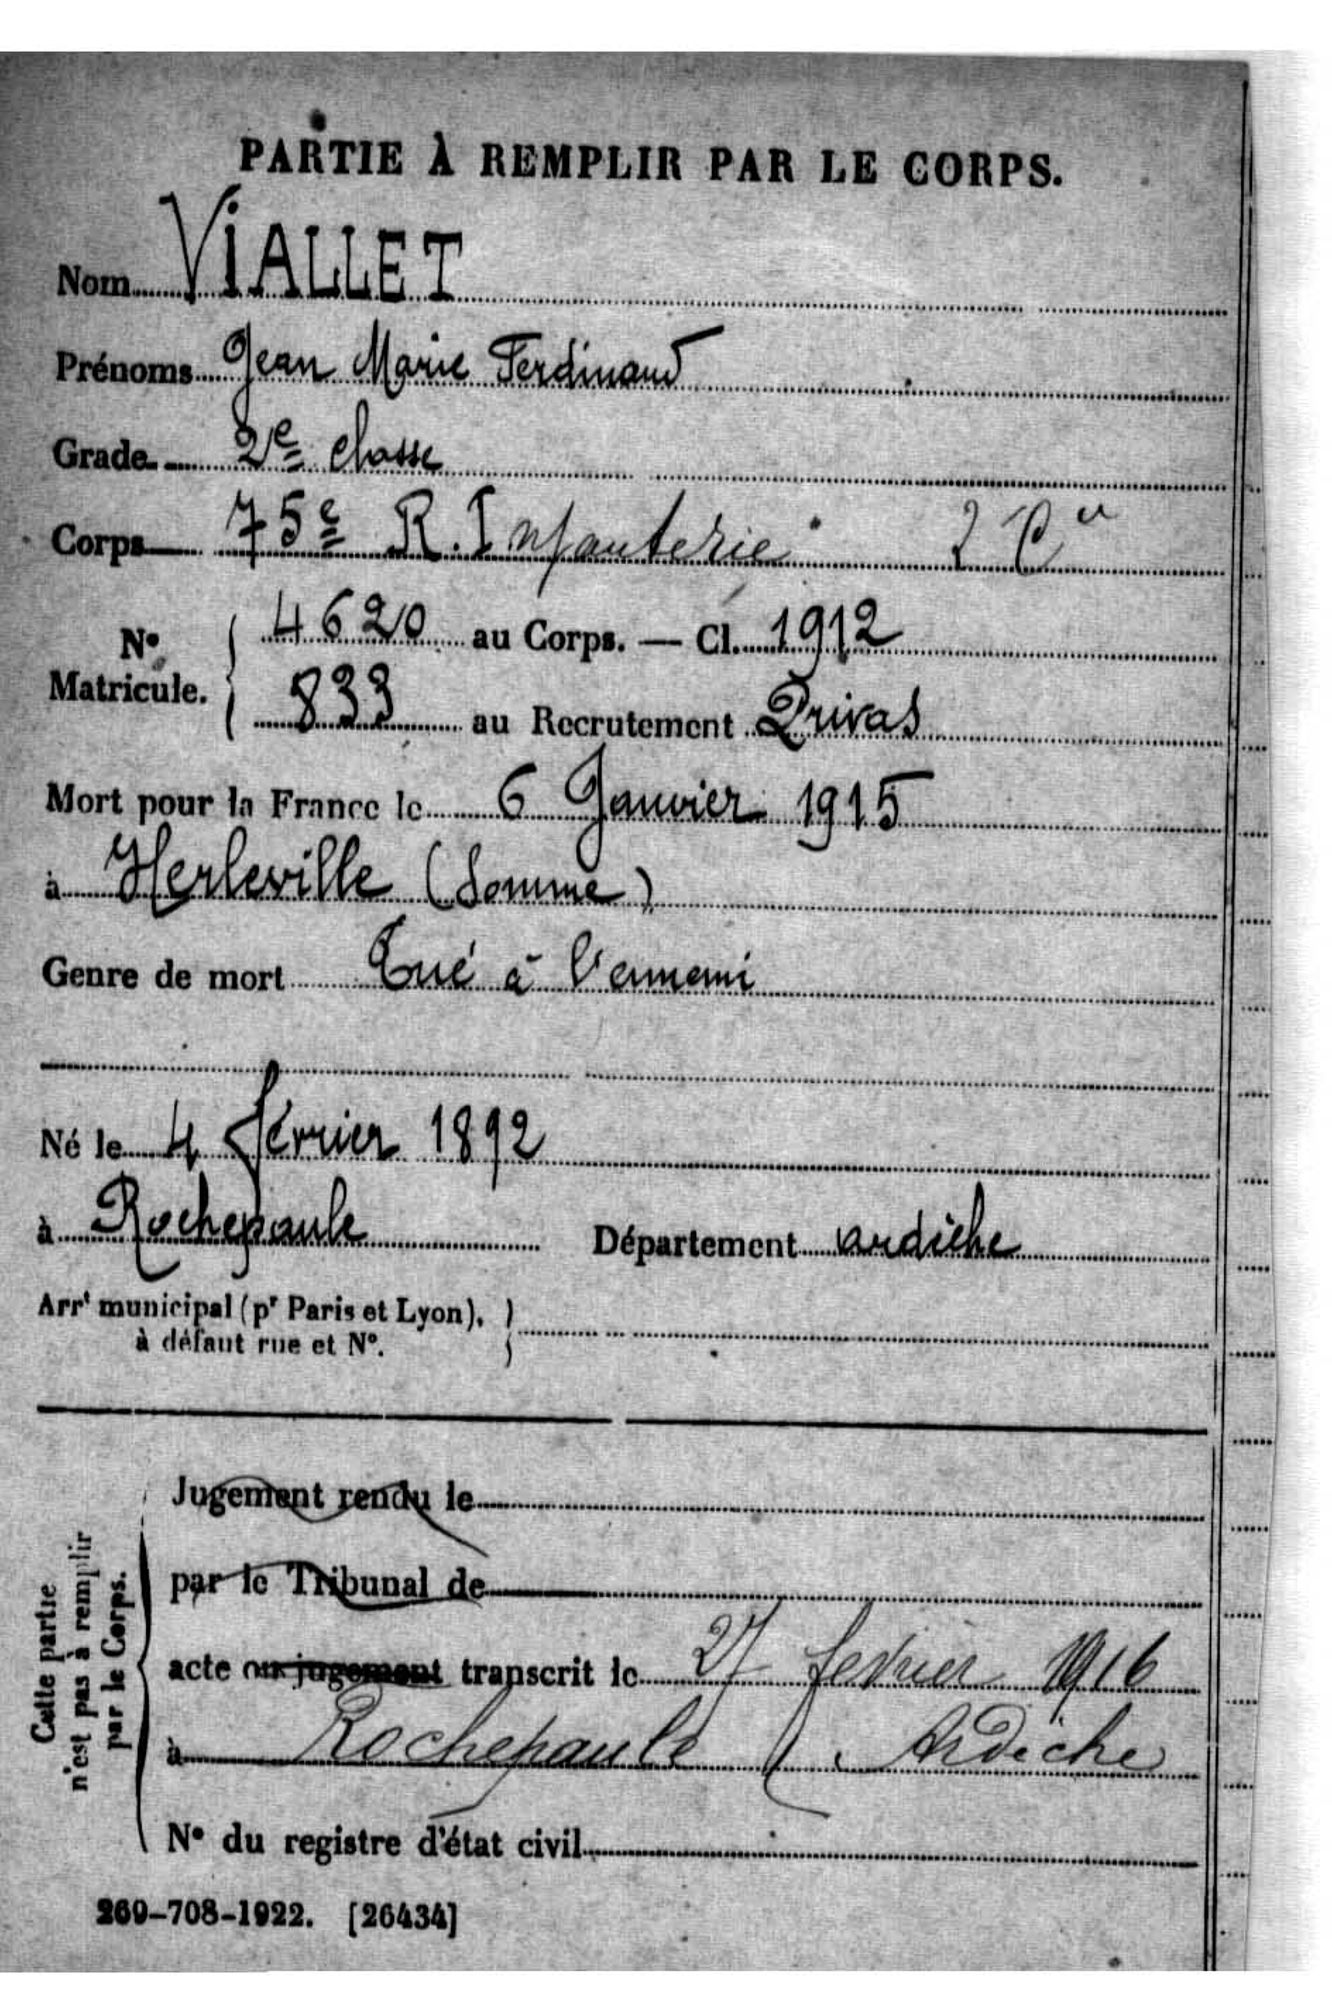 PARTIE À REMPLIR PAR LE CORPS.
Nom VIALLET
Prénoms Jean Marie Ferdinand
Grade 2e classe
Corps 75e R. Infanterie 2 Cie
No Matricule. { 4620 au Corps. — Cl. 1912
833 au Recrutement Privas
Mort pour la France le 6 Janvier 1915
à Herleville (Somme)
Genre de mort Tué à l'ennemi
Né le 4 février 1892
à Rochepaule Département ardèche
Arrt municipal (pr Paris et Lyon),
à défaut rue et No.
Cette partie
n'est pas à remplir
par le Corps.
Jugement rendu le
par le Tribunal de
acte ou jugement transcrit le 27 fevrier 1916
à Rochepaule (Ardèche
No du registre d'état civil
269-708-1922. [26434]